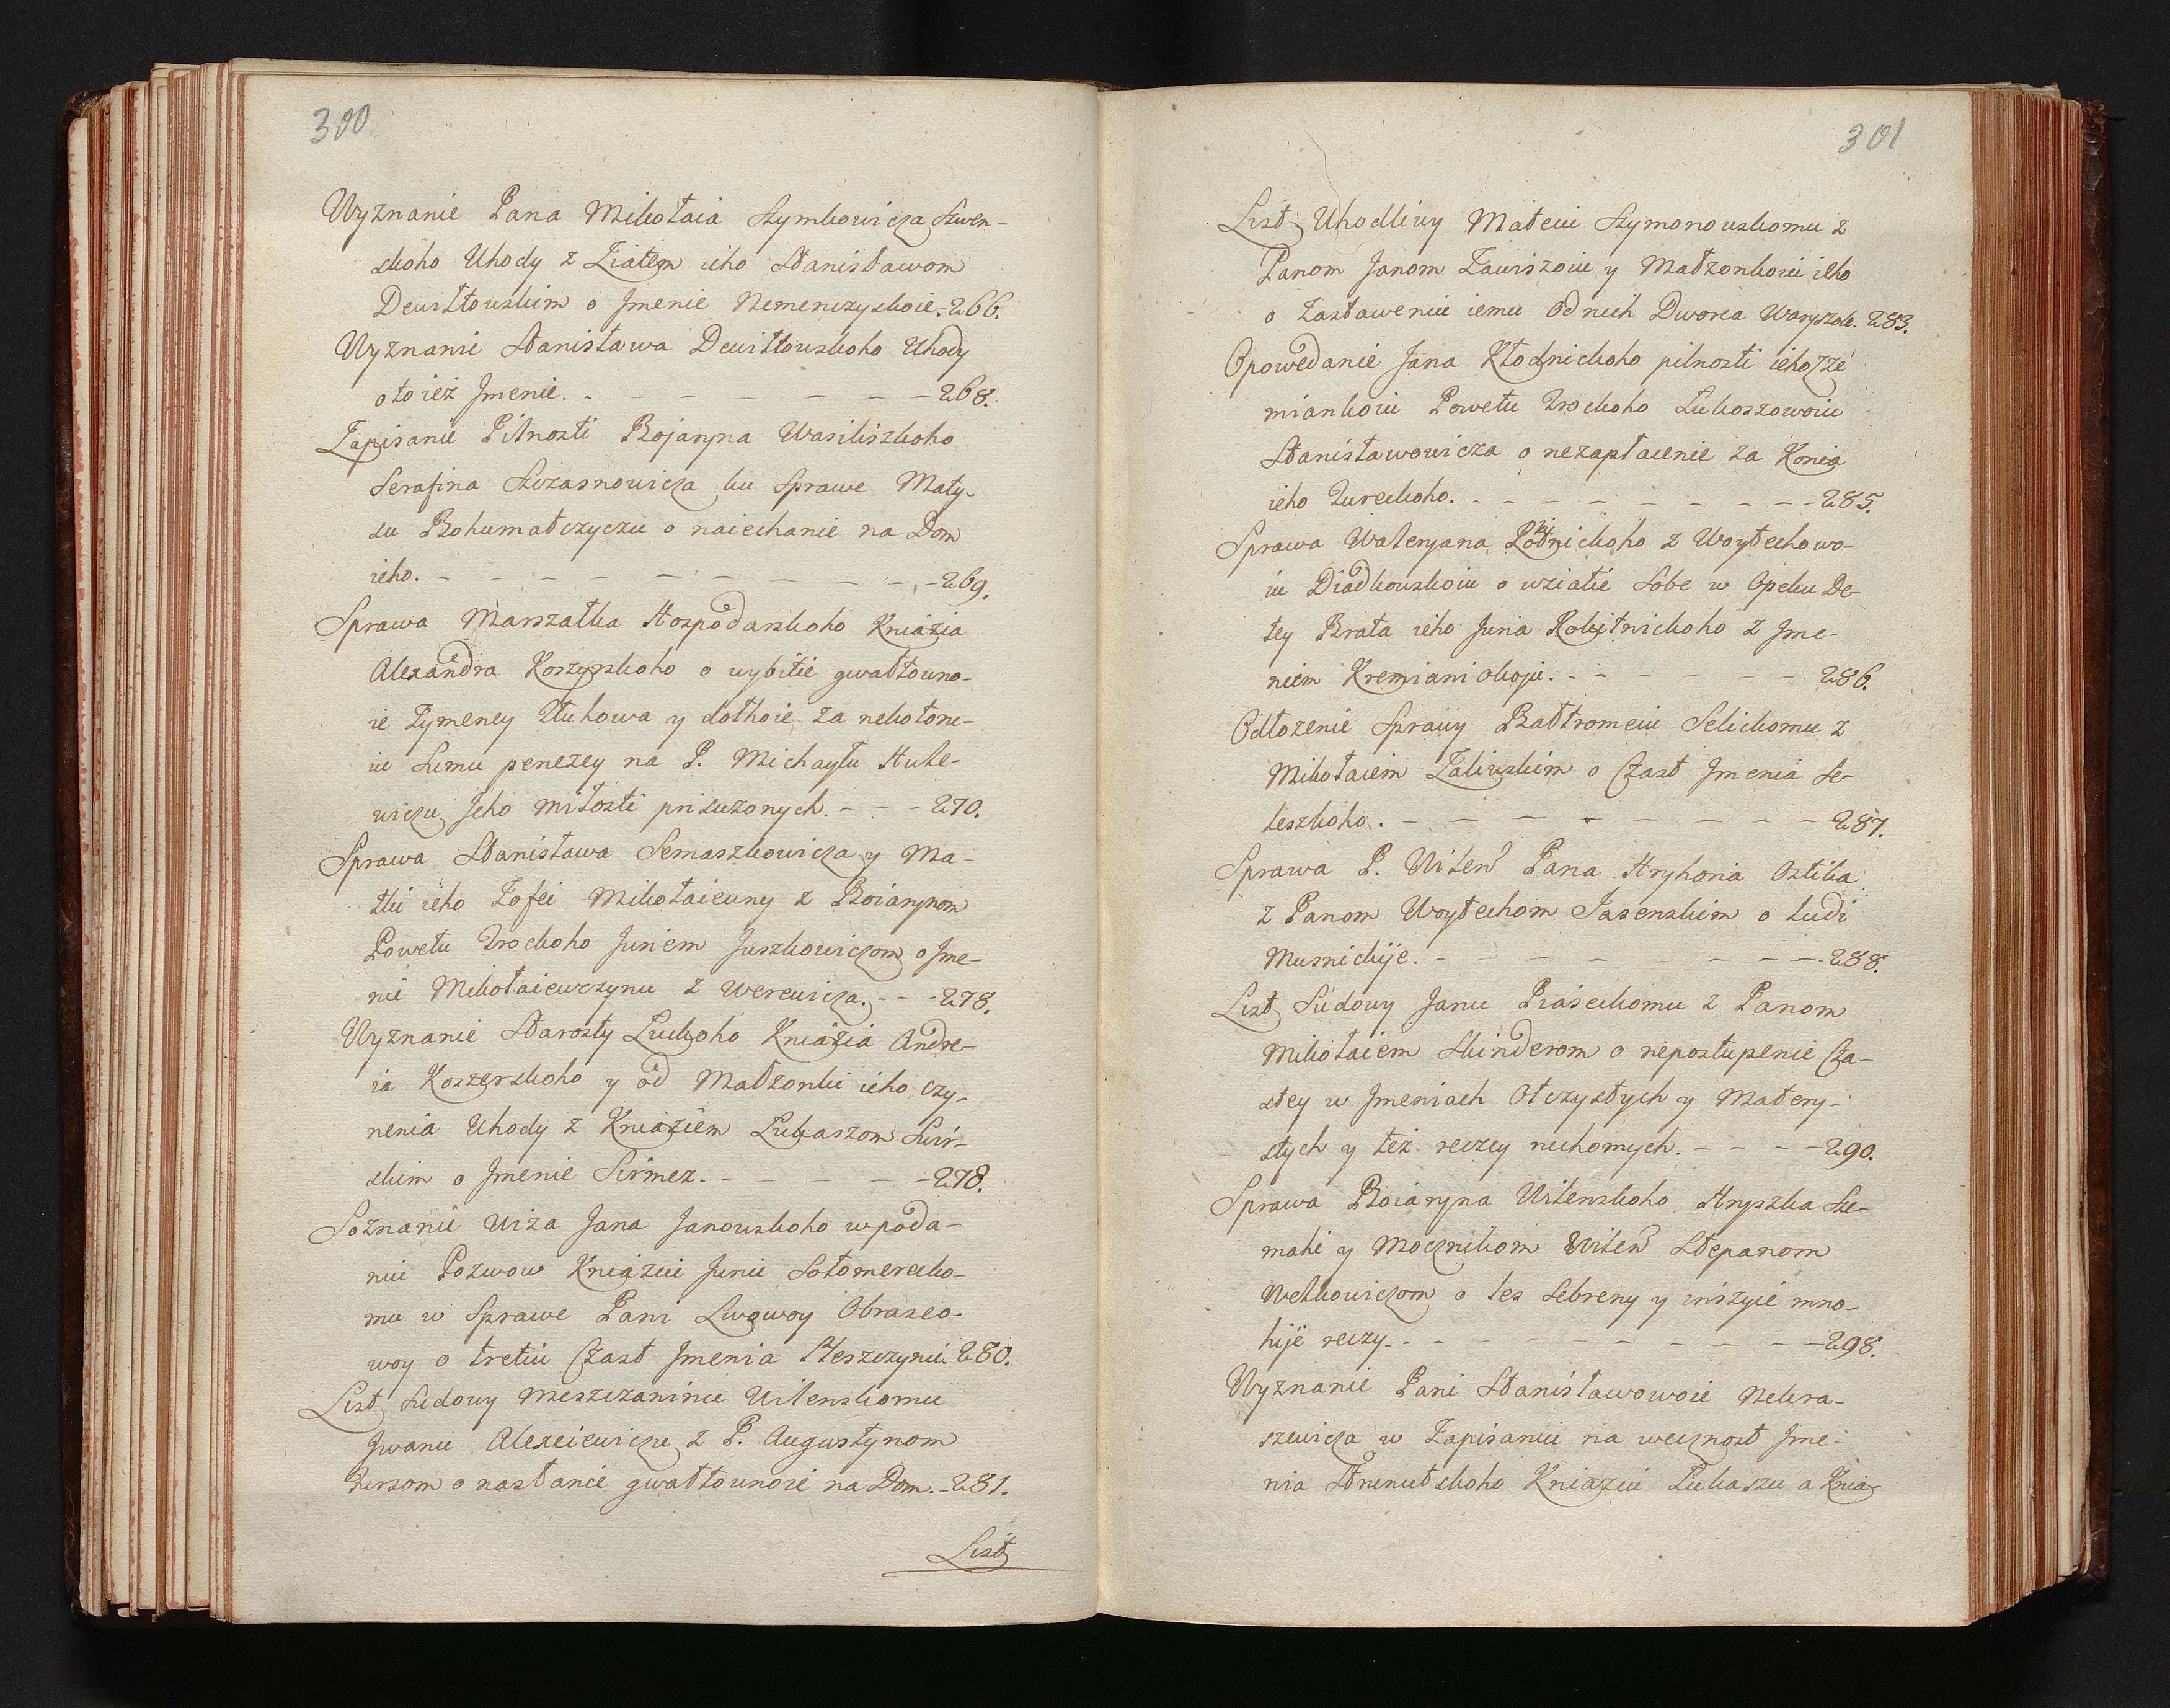 300
Wyznanie Pana Mikołaia Szymkowicza Swen-
skoho Uhody z Ziatem ieho Stanisławom
Dewiłtowskim o Jmenie Nemenczyskoie.- 266.
Wyznanie Stanisława Dewiłtowskoho Uhody
o to ież Jmenie. - - - - - - - 268.
Zapisanie Pilnosti Bojaryna Wasiliszkoho
Serafina Szczasnowicza ku Sprawe Maty-
su Bohumatczyczu o naiechanie na Dom
ieho. - - - - - - - - - - 269.
Sprawa Marszałka Hospodarskoho Kniazia
Alexandra Koszyrskoho o wybitie gwałtowno-
ie z Jmeney Tuhowa y Lothoie za nekotoru-
iu Sumu penezey na P. Michayłu Hule-
wiczu Jeho Miłosti prisuzonych. - - - 270.
Sprawa Stanisława Semaszkowicza y Ma-
tki ieho Zofei Mikołaiewny z Boiarynom
Powetu Trockoho Juriem Juszkowiczom o Jme-
nie Mikołaiewszynu z Werewicza. - - - 278.
Wyznanie Starosty Łuckoho Kniazia Andre-
ia Koszerskoho y od Małzonki ieho czy-
nenia Uhody z Kniaziem Łukaszom Swir-
skim o Jmenie Sirmez. - - - - - 278.
Soznanie Wiża Jana Janowskoho w poda-
niu Pozwow Kniaziu Juriu Sołomerecko-
mu w Sprawe Pani Lwowoy Obrazco-
woy o tretiu Czast Jmenia Heszczyniu. 280.
List Sudowy Meszczaninu Wilenskomu
Jwanu Alexeiewiczu z P. Augustynom
Tursom o nasłanie gwałtownoie na Dom. - 281.
List
301
List Uhodliwy Mateiu Szymonowskomu z
Panom Janom Zawiszoiu y Małzonkoiu ieho
o Zastaweniu iemu od nich Dworca Waryszok. 283.
Opowedanie Jana Kłodnickoho pilnosti ieho z Ze
miankoiu Powetu Trockoho Łukoszowoiu
Stanisławowicza o nezapłacenie za Konia
ieho Tureckoho. - - - - - - - - - 285.
Sprawa Waleryana Rokitnickoho z Woytechowo-
iu Diadkowskoiu o wziatie Sobe w Opeku De-
tey Brata ieho Juria Rokitnickoho z Jme-
niem Kremianickoju. - - - - - - 286.
Odłozenie Sprawy Bałtromeiu Selickomu z
Mikołaiem Zaliwskim o Czast Jmenia Se-
leszkoho. - - - - - - - - - 287.
Sprawa P. Wilen Pana Hryhoria Ostika
z Panom Woytechom Jasenskim o Ludi
Musnickije. - - - - - - - - - 288.
List Sudowy Janu Piaseckomu z Panom
Mikołaiem Skinderom o nepostupenie Cza-
stey w Jmeniach Otczystych y Matery-
stych y też reczey ruchomych. - - - - 290.
Sprawa Boiaryna Wilenskoho Hryszka Se-
mahi y Mocznikom Wilen Stepanom
Wełkowiczom o les Sebreny y inszyie mno-
hije reczy. - - - - - - - - - 298.
Wyznanie Pani Stanisławowoie Nekra-
szewicza w Zapisaniu na wecznost Jme-
nia Strunutskoho Kniaziu Łukaszu a Knia-